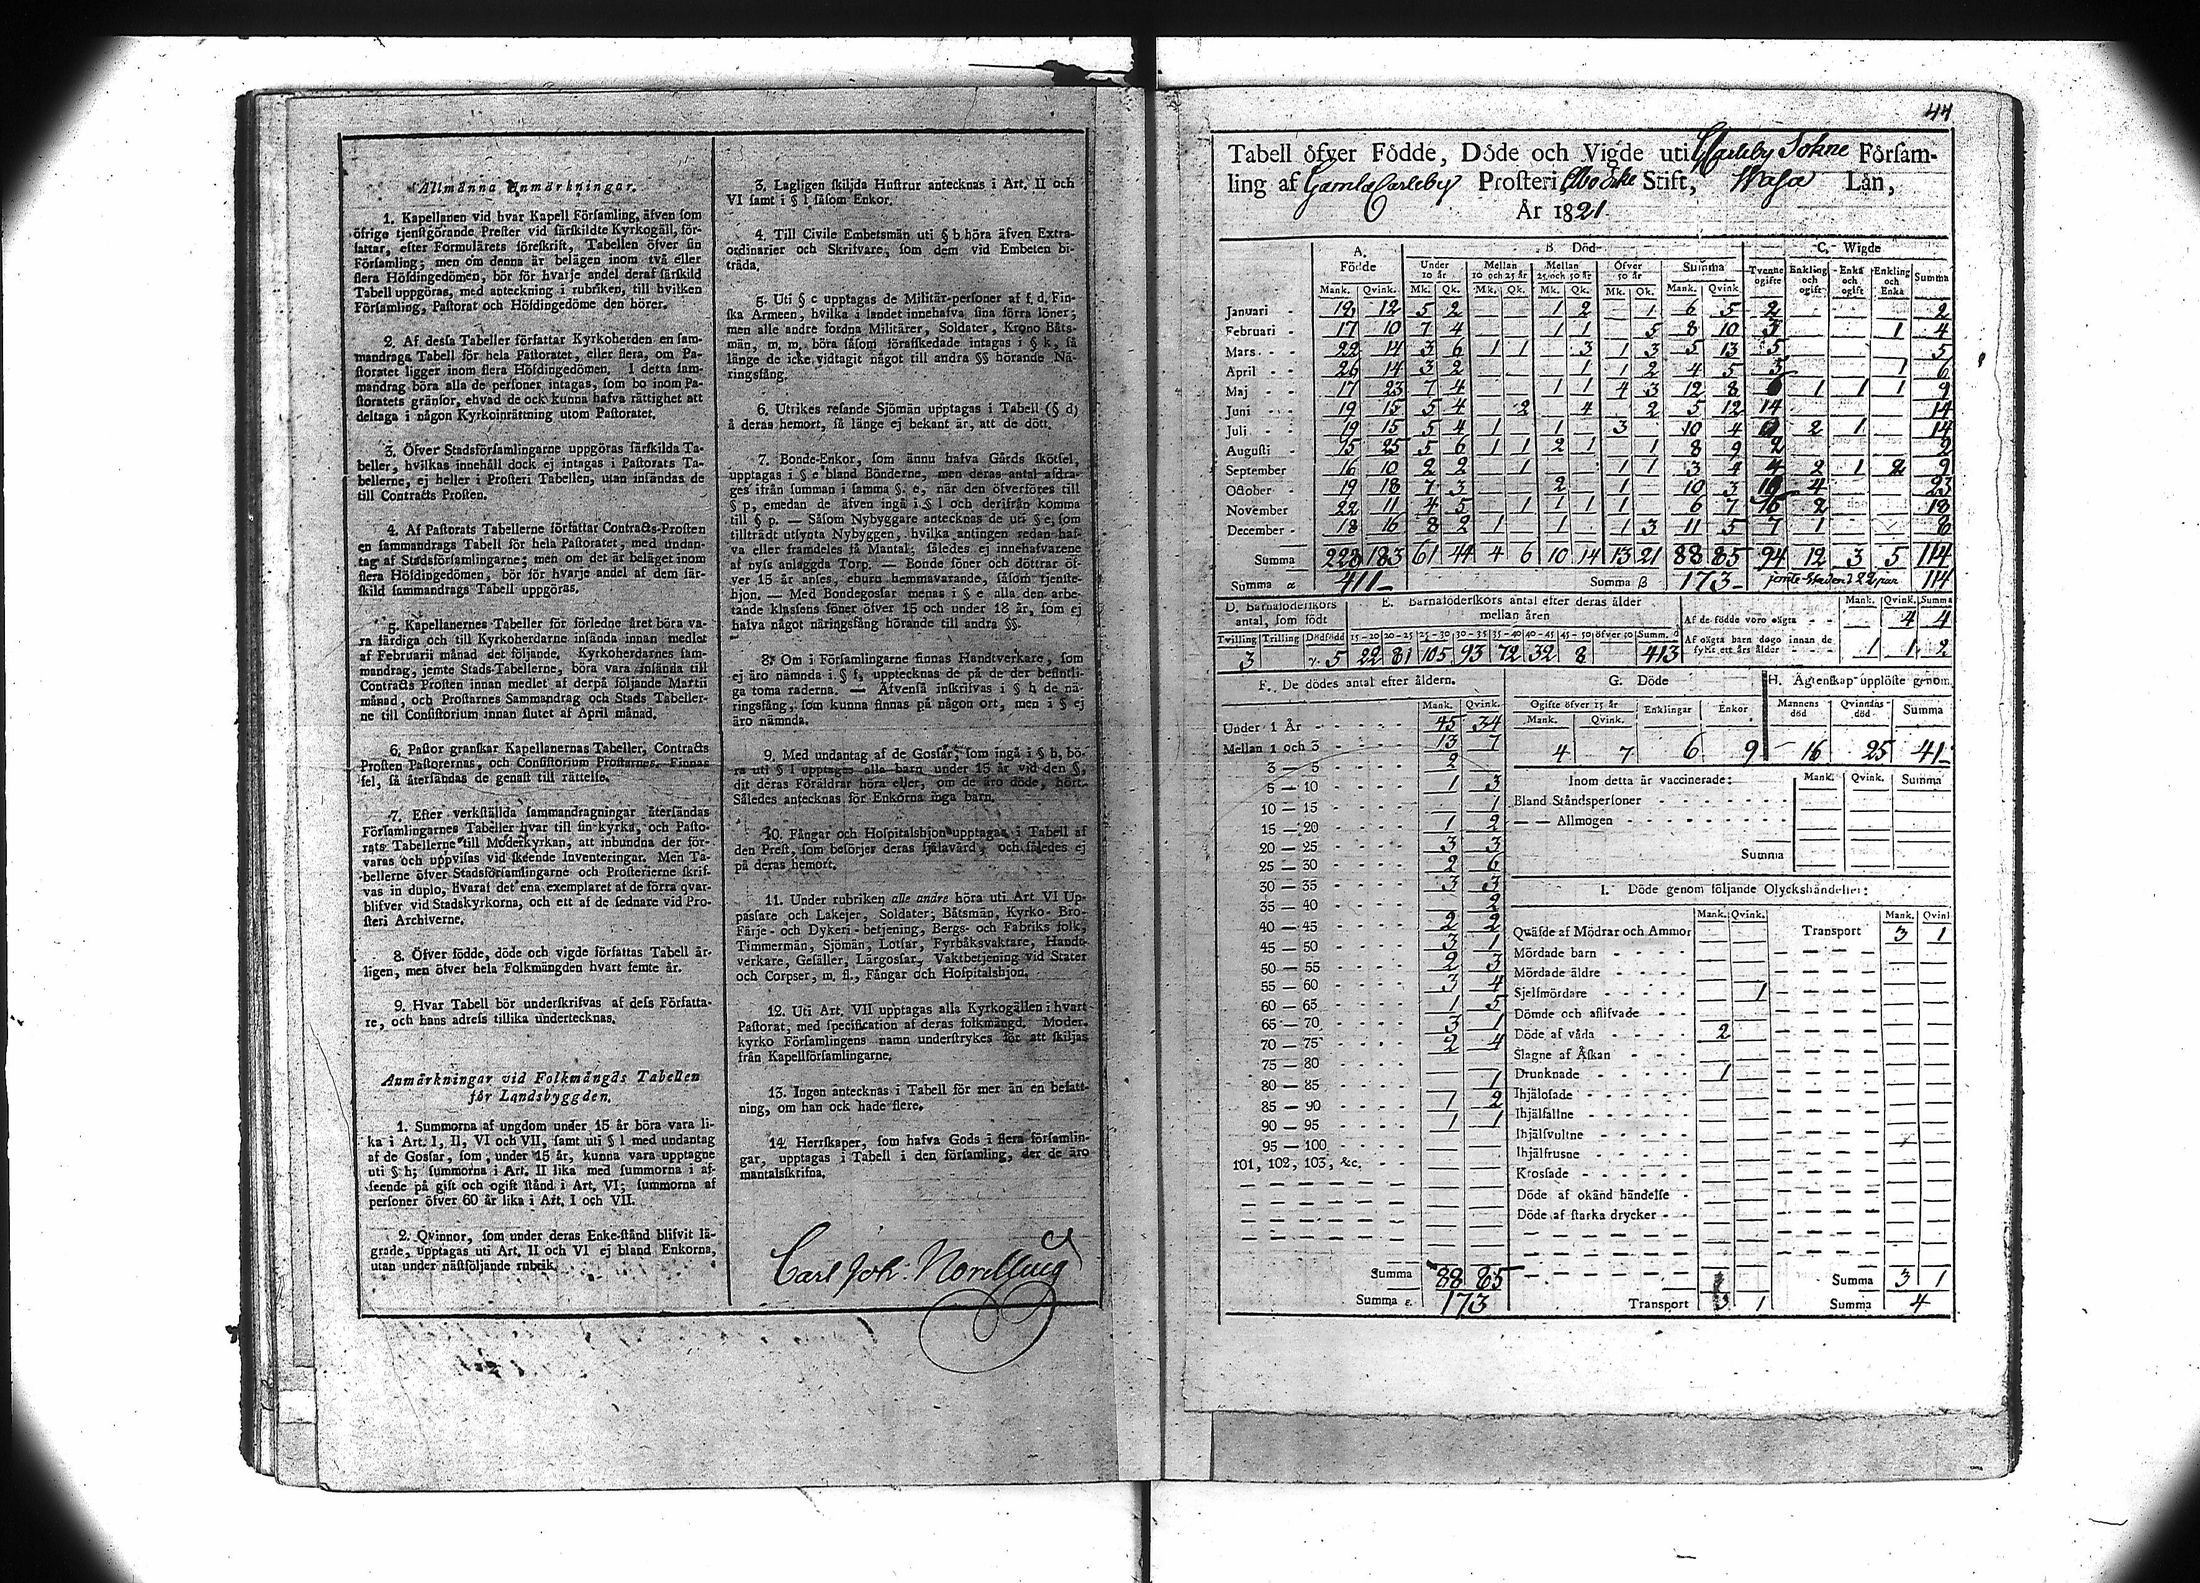 Allmänna Anmärkningar.
1. Kapellanen vid hvar Kapell Församling, äfven som
öfrige tjenstgörande Prester vid särskildte Kyrkogäll, för-
fattar, efter Formulärets föreskrift, Tabellen öfver sin
Församling; men om denna är belägen inom två eller
flera Höfdingedömen, bör för hvarje andel deraf särskild
Tabell uppgöras, med anteckning i rubriken, till hvilken
Församling, Pastorat och Höfdingedöme den hörer.
2. Af dessa Tabeller författar Kyrkoherden en sam-
mandrags Tabell för hela Pastoratet, eller flera, om Pa-
storatet ligger inom flera Höfdingedömen. I detta sam-
mandrag böra alla de personer intagas, som bo inom Pa-
storatets gränsor, ehvad de ock kunna hafva rättighet att
deltaga i någon Kyrkoinrättning utom Pastoratet.
3. Öfver Stadsförsamlingarne uppgöras särskilda Ta-
beller, hvilkas innehåll dock ej intages i Pastorats Ta-
bellerne, ej heller i Prosteri Tabellen, utan insändas de
till Contracts Prosten.
4. Af Pastorats Tabellerne författar Contracts-Prosten
en sammandrags Tabell för hela Pastoratet, med undan-
tag af Stadsförsamlingarne; men om det är beläget inom
flera Höfdingedömen, bör för hvarje andel af dem sär-
skild sammandrags Tabell uppgöras.
5. Kapellanernes Tabeller för förledne året böra va-
ra färdiga och till Kyrkoherdarne insända innan medlet
af Februarii månad det följande. Kyrkoherdarnes sam-
mandrag, jemte Stads-Tabellerne, böra vara insända till
Contracts Prosten innan medlet af derpå följande Martii
månad, och Prostarnes Sammandrag och Stads Tabeller-
ne till Consistorium innan slutet af April månad.
6. Pastor granskar Kapellanernas Tabeller, Contracts
Prosten Pastorernas, och Consistorium Prostarnes. Finnas
fel, så återsändas de genast till rättelse.
7. Efter verkställda sammandragningar återsändas
Församlingarnes Tabeller hvar till sin kyrka, och Pasto-
rats Tabellerne till Moderkyrkan, att inbundna der för-
varas och uppvisas vid skeende Inventeringar. Men Ta-
bellerne öfver Stadsförsamlingarne och Prosterierne skrif-
vas in duplo, hvaraf det ena exemplaret af de förra qvar-
blifver vid Stadskyrkorna, och ett af de sednare vid Pro-
steri Archiverne.
8. Öfver födde, döde och vigde författas Tabell år-
ligen, men öfver hela Folkmängden hvart femte år.
9. Hvar Tabell bör underskrifvas af dess Författa-
re, och hans adress tillika undertecknas.
Anmärkningar vid Folkmängds Tabellen
för Landsbyggden.
1. Summorna af ungdom under 15 år böra vara li-
ka i Art. I, II, VI och VII, samt uti § l med undantag
af de Gossar, som, under 15 år, kunna vara upptagne
uti § h; summorna i Art. II lika med summorna i af-
seende på gift och ogift stånd i Art. VI; summorna af
personer öfver 60 år lika i Art. I och VII.
2. Qvinnor, som under deras Enke-stånd blifvit lä-
grade, upptagas uti Art. II och VI ej bland Enkorna,
utan under nästföljande rubrik.
3. Lagligen skiljda Hustrur antecknas i Art. II och
VI samt i § l såsom Enkor.
4. Till Civile Embetsmän uti § b höra äfven Extra-
ordinarier och Skrifvare, som dem vid Embeten bi-
träda.
5. Uti § c upptagas de Militär-personer af f. d. Fin-
ska Armeen, hvilka i landet innehafva sina förra löner;
men alle andre fordna Militärer, Soldater, Krono Båts-
män, m. m. böra såsom förafskedade intagas i § k, så
länge de icke vidtagit något till andra §§ hörande Nä-
ringsfång.
6. Utrikes resande Sjömän upptagas i Tabell (§ d)
å deras hemort, så länge ej bekant är, att de dött.
7. Bonde-Enkor, som ännu hafva Gårds skötsel,
upptagas i § e bland Bönderne, men deras antal afdra-
ges ifrån summan i samma §. e, när den öfverföres till
§ p, emedan de äfven ingå i § l och derifrån komma
till § p. — Såsom Nybyggare antecknas de uti § e, som
tillträdt utsynta Nybyggen, hvilka antingen redan haf-
va eller framdeles få Mantal; således ej innehafvarene
af nyss anläggda Torp. — Bonde söner och döttrar öf-
ver 15 år anses, ehuru hemmavarande, såsom tjenste-
hjon. — Med Bondegossar menas i § e alla den arbe-
tande klassens söner öfver 15 och under 18 år, som ej
hafva något näringsfång hörande till andra §§.
8. Om i Församlingarne finnas Handtverkare, som
ej äro nämnda i § f, upptecknas de på de der befintli-
ga toma raderna. — Äfvenså inskrifvas i § h de nä-
ringsfång, som kunna finnas på någon ort, men i § ej
äro nämnda.
9. Med undantag af de Gossar, som ingå i § h, bö-
ra uti § l upptages alla barn under 15 år vid den §,
dit deras Föräldrar höra eller, om de äro döde, hört.
Således antecknas för Enkorna inga barn.
10. Fångar och Hospitalshjon upptagas i Tabell af
den Prest, som besörjer deras själavård, och således ej
på deras hemort.
11. Under rubriken alle andre höra uti Art VI Up-
passare och Lakejer, Soldater, Båtsmän, Kyrko- Bro-
Färje- och Dykeri-betjening, Bergs- och Fabriks folk,
Timmermän, Sjömän, Lotsar, Fyrbåksvaktare, Handt-
verkare, Gesäller, Lärgossar, Vaktbetjening vid Stater
och Corpser, m. fl., Fångar och Hospitalshjon.
12. Uti Art. VII upptagas alla Kyrkogällen i hvart
Pastorat, med specification af deras folkmängd. Moder-
kyrko Församlingens namn understrykes för att skiljas
från Kapellförsamlingarne.
13. Ingen antecknas i Tabell för mer än en befatt-
ning, om han ock hade flere.
14. Herrskaper, som hafva Gods i flera församlin-
gar, upptagas i Tabell i den församling, der de äro
mantalsskrifna.
Carl Joh. Nordlung
44
Tabell öfver Födde, Döde och Vigde uti Carleby Sokne Församling af Gamla Carleby Prosteri Åbo Erke Stift, Wasa Län,
År 1821
A. Födde B. Död- C. Wigde
Under 10 år Mellan 10 och 25 år Mellan 25 och 50 år Öfver 50 år Summa Tvenne ogifte Enkling och ogift Enka och ogift Enkling och Enka Summa
Mank. Qvink. Mk. Qk. Mk. Qk. Mk. Qk. Mk. Qk. Mank. Qvink
Januari 12 5 2 1 2 1 6 5 2 2
Februari 17 10 7 4 1 1 5 8 10 3 1 4
Mars 22 14 3 6 1 1 3 1 3 5 13 5 5
April 26 14 3 2 1 1 2 4 5 1 6
Maj 17 23 7 4 1 1 4 3 12 8 6 1 1 1 9
Juni 19 15 5 4 2 4 2 5 12 14 14
Juli 19 15 5 4 1 1 3 10 4 2 1 14
Augusti 15 25 5 6 1 1 2 1 1 8 9 2 2
September 16 10 2 2 1 1 1 3 4 4 2 1 2 9
October 19 18 7 3 2 1 10 3 4 23
November 22 11 4 5 1 1 1 1 6 7 16 2 18
December 18 16 8 2 1 1 1 3 11 5 7 1 8
Summa 228 183 61 44 4 6 10 14 13 21 88 85 94 12 3 5 114
Summa α 411 Summa β 173 jemte Staden 22 par 114
D. Barnaföderskors antal, som födt
E. Barnaföderskors antal efter deras ålder mellan åren
Tvilling Trilling Dödfödd 15–20 20–25 25–30 30–35 35–40 40–45 45–50 öfver 50 Summ.
3 5 22 81 105 93 72 32 8 413
Mank. Qvink. Summa
Af de födde voro oägta 4 4
Af oägta barn dogo innan de fyllt ett års ålder 1 1 2
F. De dödes antal efter åldern.
Mank. Qvink.
Under 1 År 45 34
Mellan 1 och 3 13 7
3 — 5 2
5 — 10 1 3
10 — 15 1
15 — 20 1 2
20 — 25 3 3
25 — 30 2 6
30 — 35 3 3
35 — 40 2
40 — 45 2 2
45 — 50 3 1
50 — 55 2 3
55 — 60 3 4
60 — 65 1 5
65 — 70 3 1
70 — 75 2 4
75 — 80
80 — 85 1
85 — 90 1 2
90 — 95 1 1
95 — 100
101, 102, 103, &c.
Summa 88 85
Summa ε. 173
G. Döde
Ogifte öfver 15 år Enklingar Enkor
Mank. Qvink.
4 7 6 9
H. Ägtenskap upplöste genom
Mannens död Qvinnans död Summa
16 25 41
Inom detta år vaccinerade: Mank. Qvink. Summa
Bland Ståndspersoner
— — Allmogen
Summa
I. Döde genom följande Olyckshändelser:
Mank. Qvink. Mank. Qvink
Qväfde af Mödrar och Ammor Transport 3 1
Mördade barn
Mördade äldre
Sjelfmördare 1
Dömde och aflifvade
Döde af våda 2
Slagne af Åskan
Drunknade 1
Ihjälosade
Ihjälfallne
Ihjälsvultne
Ihjälfrusne
Krossade
Döde af okänd händelse
Döde af starka drycker
Summa 3 1
Transport 3 1 Summa 4